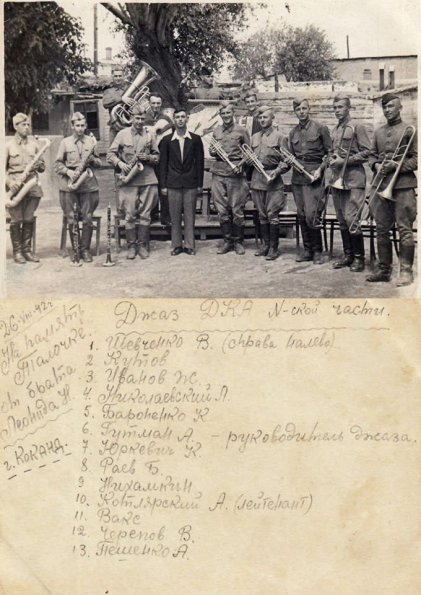 26 VIII 42 г.
На память
Талочке.
от брата
Леонида Н.
г. Коканд
Джаз ДКА N-ской части.
1. Шевченко В. (справа налево)
2. Кутов
3. Иванов Ж.
4. Николаевский Л.
5. Бароненко К.
6. Гутман А. – руководитель джаза.
7. Юркевич К.
8. Раев Б.
9 Нихамкин
10. Котлярский А. (лейтенант)
11. Вакс
12. Черепов В.
13. Пешенко А.